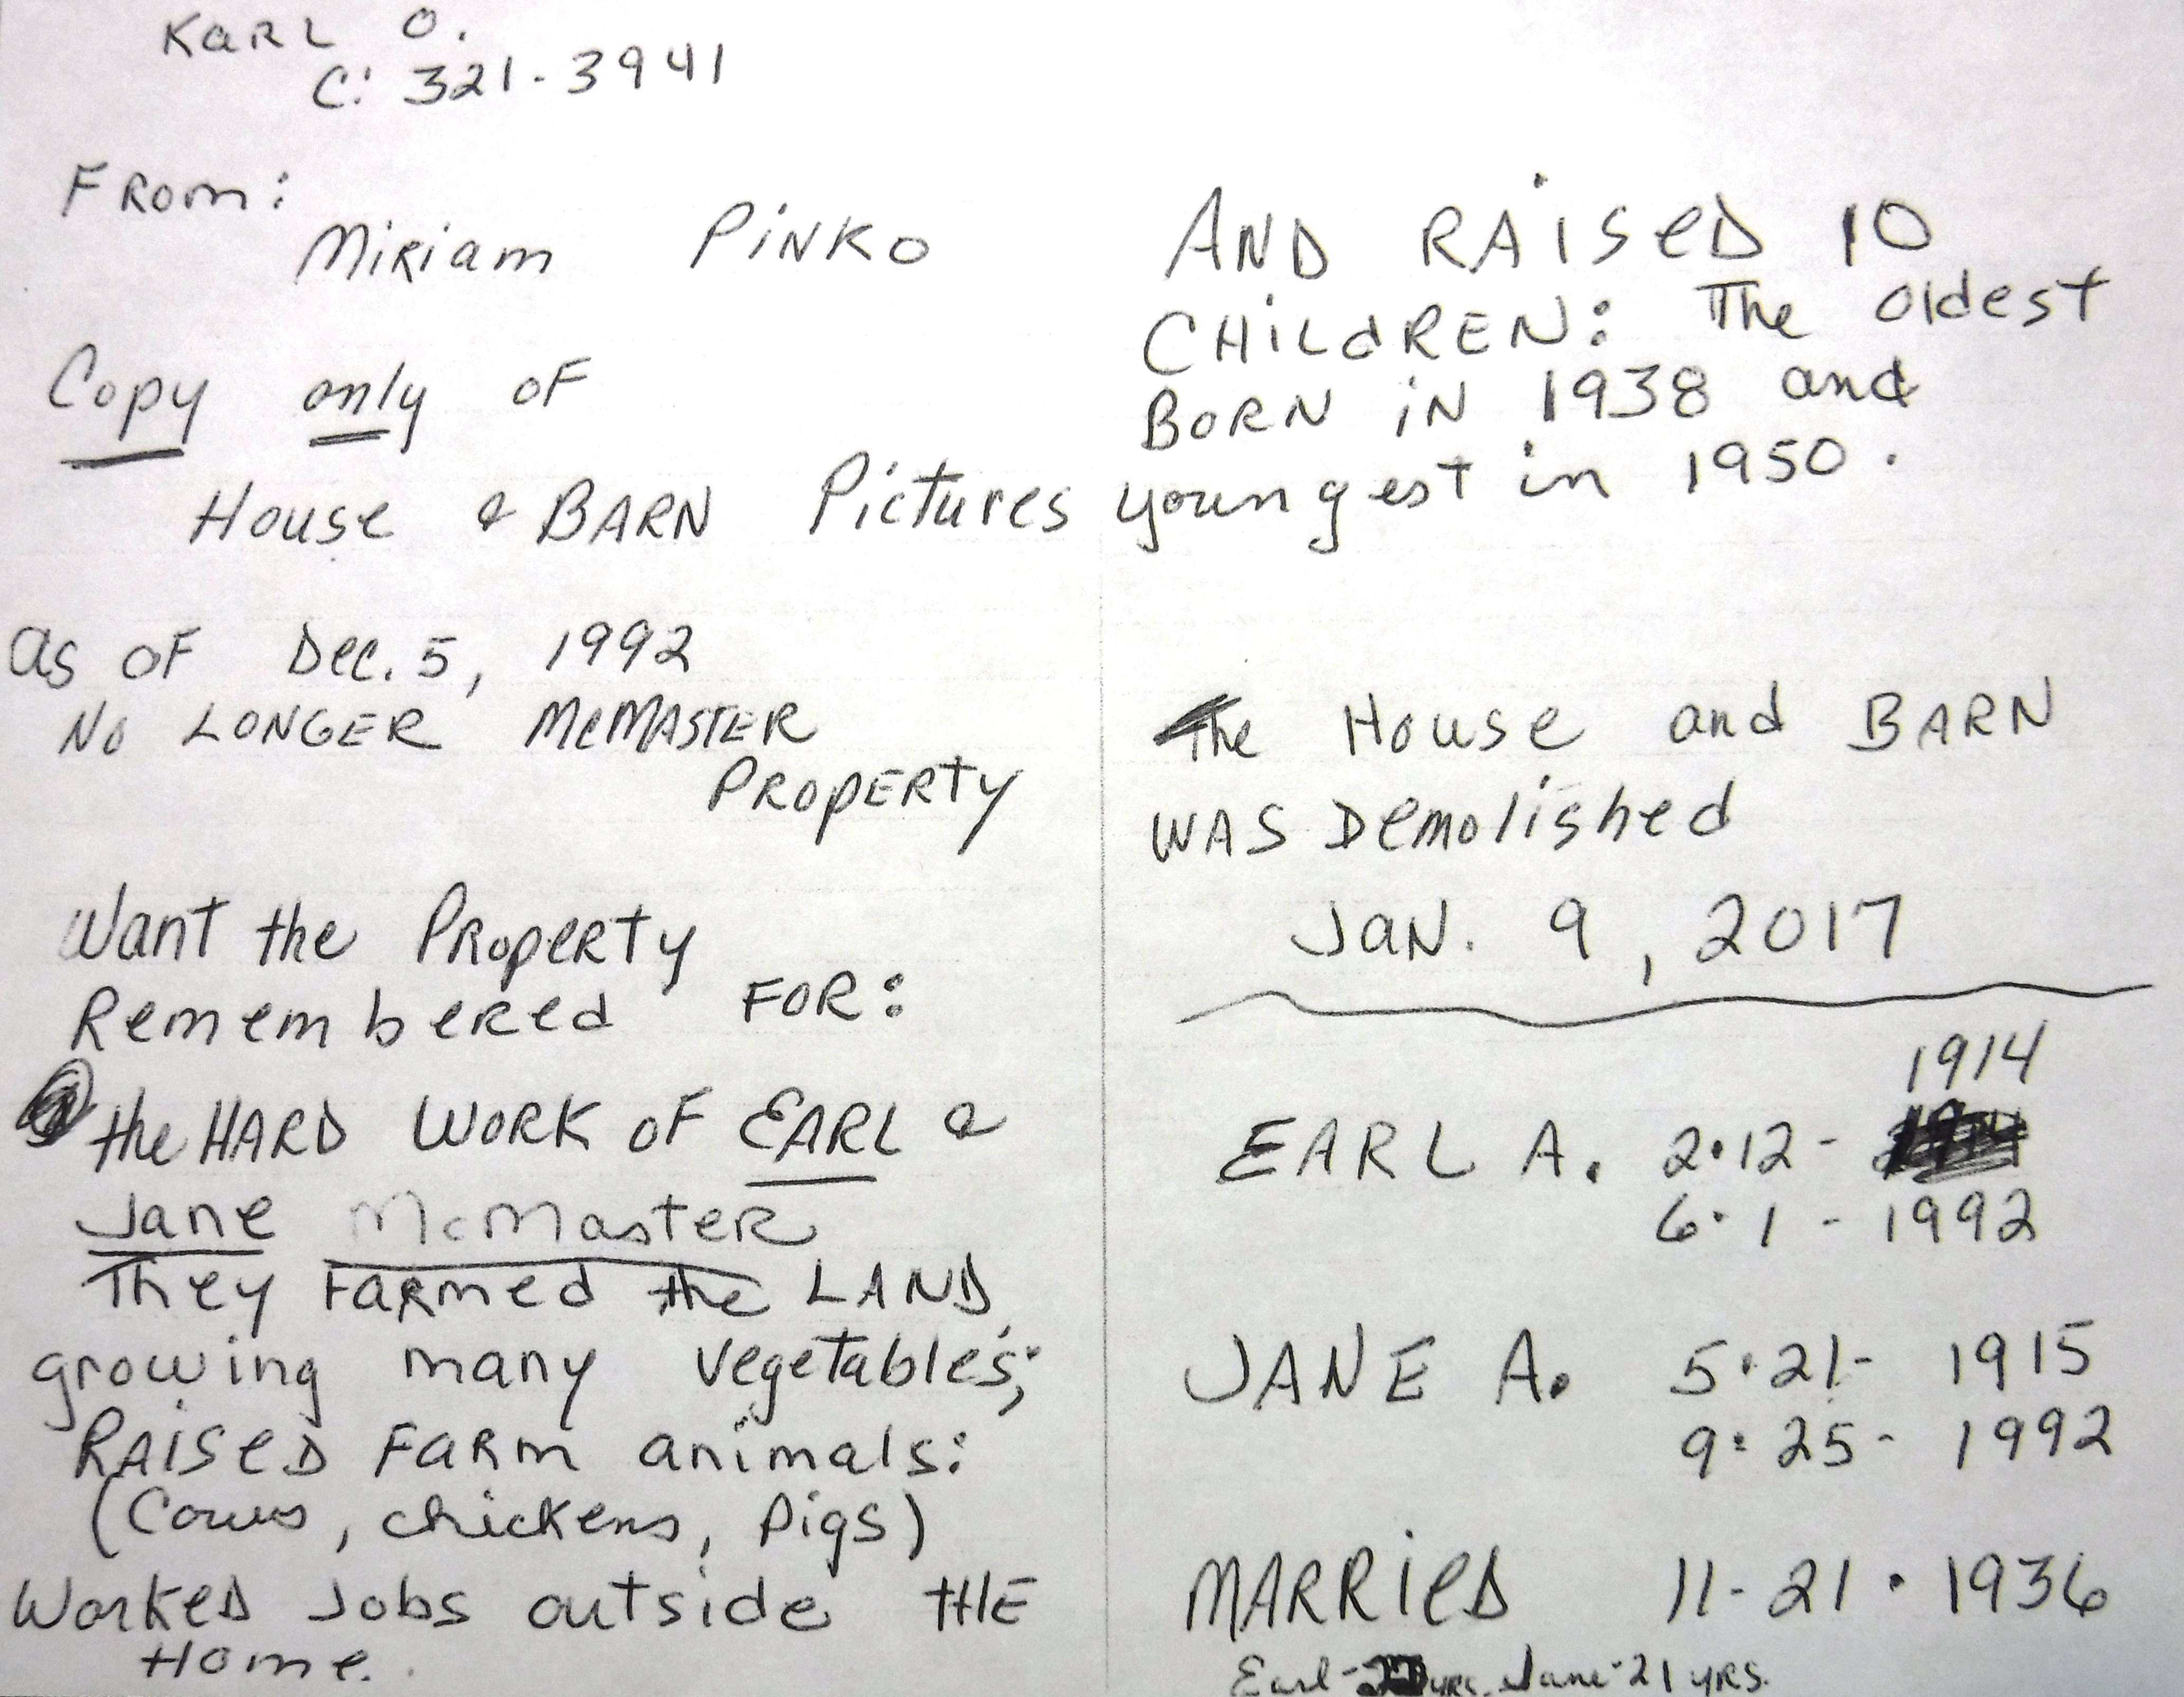 KARL O.
C: 321-3941
FROM:
Miriam PiNKO
Copy only of
House & BARN Pictures
as OF Dec. 5, 1992
No LONGER McMASTER
PROPERTY
Want the PROPERTY
Remembered FOR:
the HARD WORK OF EARL &
Jane McMasteR
They FARmed the LAND,
growing many vegetables;
RAISED FARM animals:
(Cows, chickens, pigs)
WORKED Jobs outside tHE
Home.
AND RAISED 10
CHILdREN: The oldest
BORN iN 1938 and
youngest in 1950.
The House and BARN
WAS Demolished
JAN. 9, 2017
1914
EARL A. 2·12-
6·1-1992
JANE A. 5·21- 1915
9·25- 1992
MARRieD 11-21·1936
Earl- yrs. Jane-21 yRS.